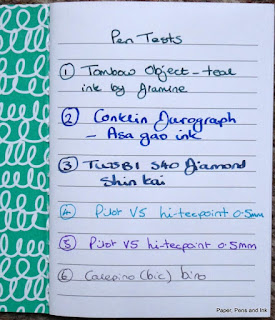 Pen Tests
① Tombow Object - teal
ink by Diamine
② Conklin Durograph
- Asa gao ink
③ TWSBI 540 Diamond
Shin kai
④ Pilot V5 hi-tecpoint 0.5mm
⑤ Pilot V5 hi-tecpoint 0.5mm
⑥ (bic) biro
Paper, Pens and Ink